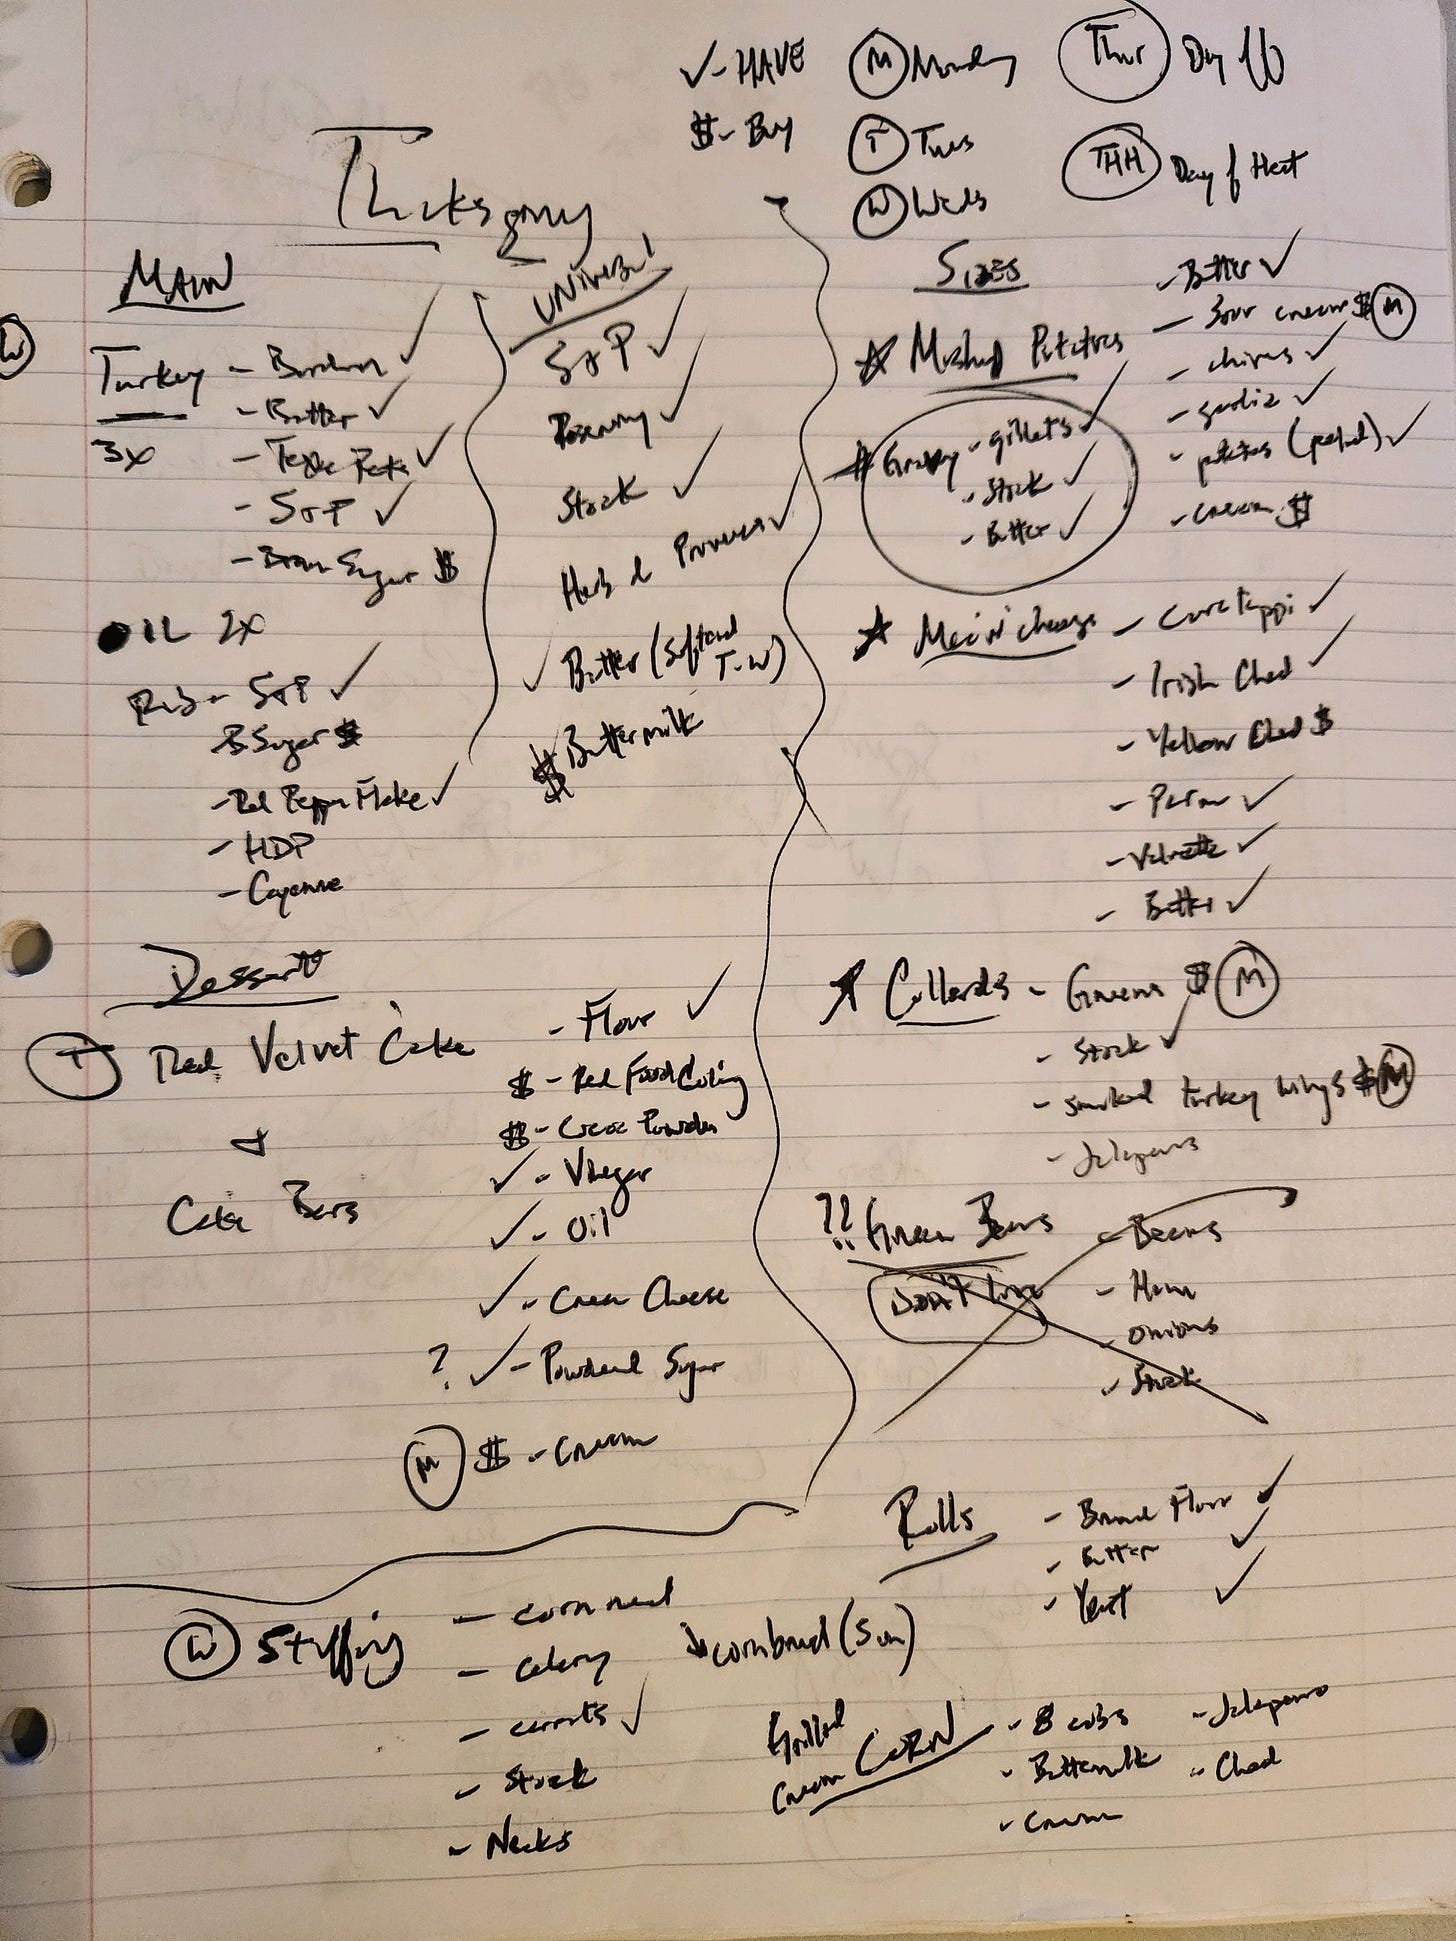 ✓ - HAVE
$ - Buy
(M) Monday
(T) Tues
(W) Weds
(Thur) Day of
(THH) Day of Heat
Thanksgiving
MAIN
(W)
Turkey - Bourbon ✓
3x
- Butter ✓
- Texas Pete ✓
- S&P ✓
- Brown Sugar $
OIL 2x
Rub - S&P ✓
B Sugar $
- Red Pepper Flake ✓
- HDP
- Cayenne
Universal
S&P ✓
Rosemary ✓
Stock ✓
Herb d Provence ✓
✓ Butter (softened T-W)
$ Buttermilk
Dessert
(T) Red Velvet Cake
&
Cake Bars
- Flour ✓
$ - Red Food Coloring
$ - Cocoa Powder
✓ - Vinegar
✓ - Oil
✓ - Cream Cheese
? ✓ - Powdered Sugar
(M) $ - Cream
SIDES
☆ Mashed Potatoes
- Butter ✓
- Sour cream $ (M)
- chives ✓
- garlic ✓
- potatoes (peeled) ✓
- cream $
☆ Gravy - gibblets ✓
- Stock ✓
- Butter ✓
☆ Mac'n'cheese - Cavatappi ✓
- Irish Ched ✓
- Yellow Ched $
- Parm ✓
- Velveeta ✓
- Butter ✓
☆ Collards - Greens $ (M)
- Stock ✓
- smoked turkey wings $ (M)
- Jalapenos
?? Green Beans
Don't Love
- Beans
- Ham
- onions
- Stock
Rolls - Bread Flour ✓
- Butter ✓
- Yeast ✓
(W) Stuffing - corn meal
- celery
- carrots ✓
- Stock
- Necks
cornbread (Sun)
Grilled
Cream CORN - 8 cobs
- Buttermilk
- Cream
- Jalapeno
- Ched